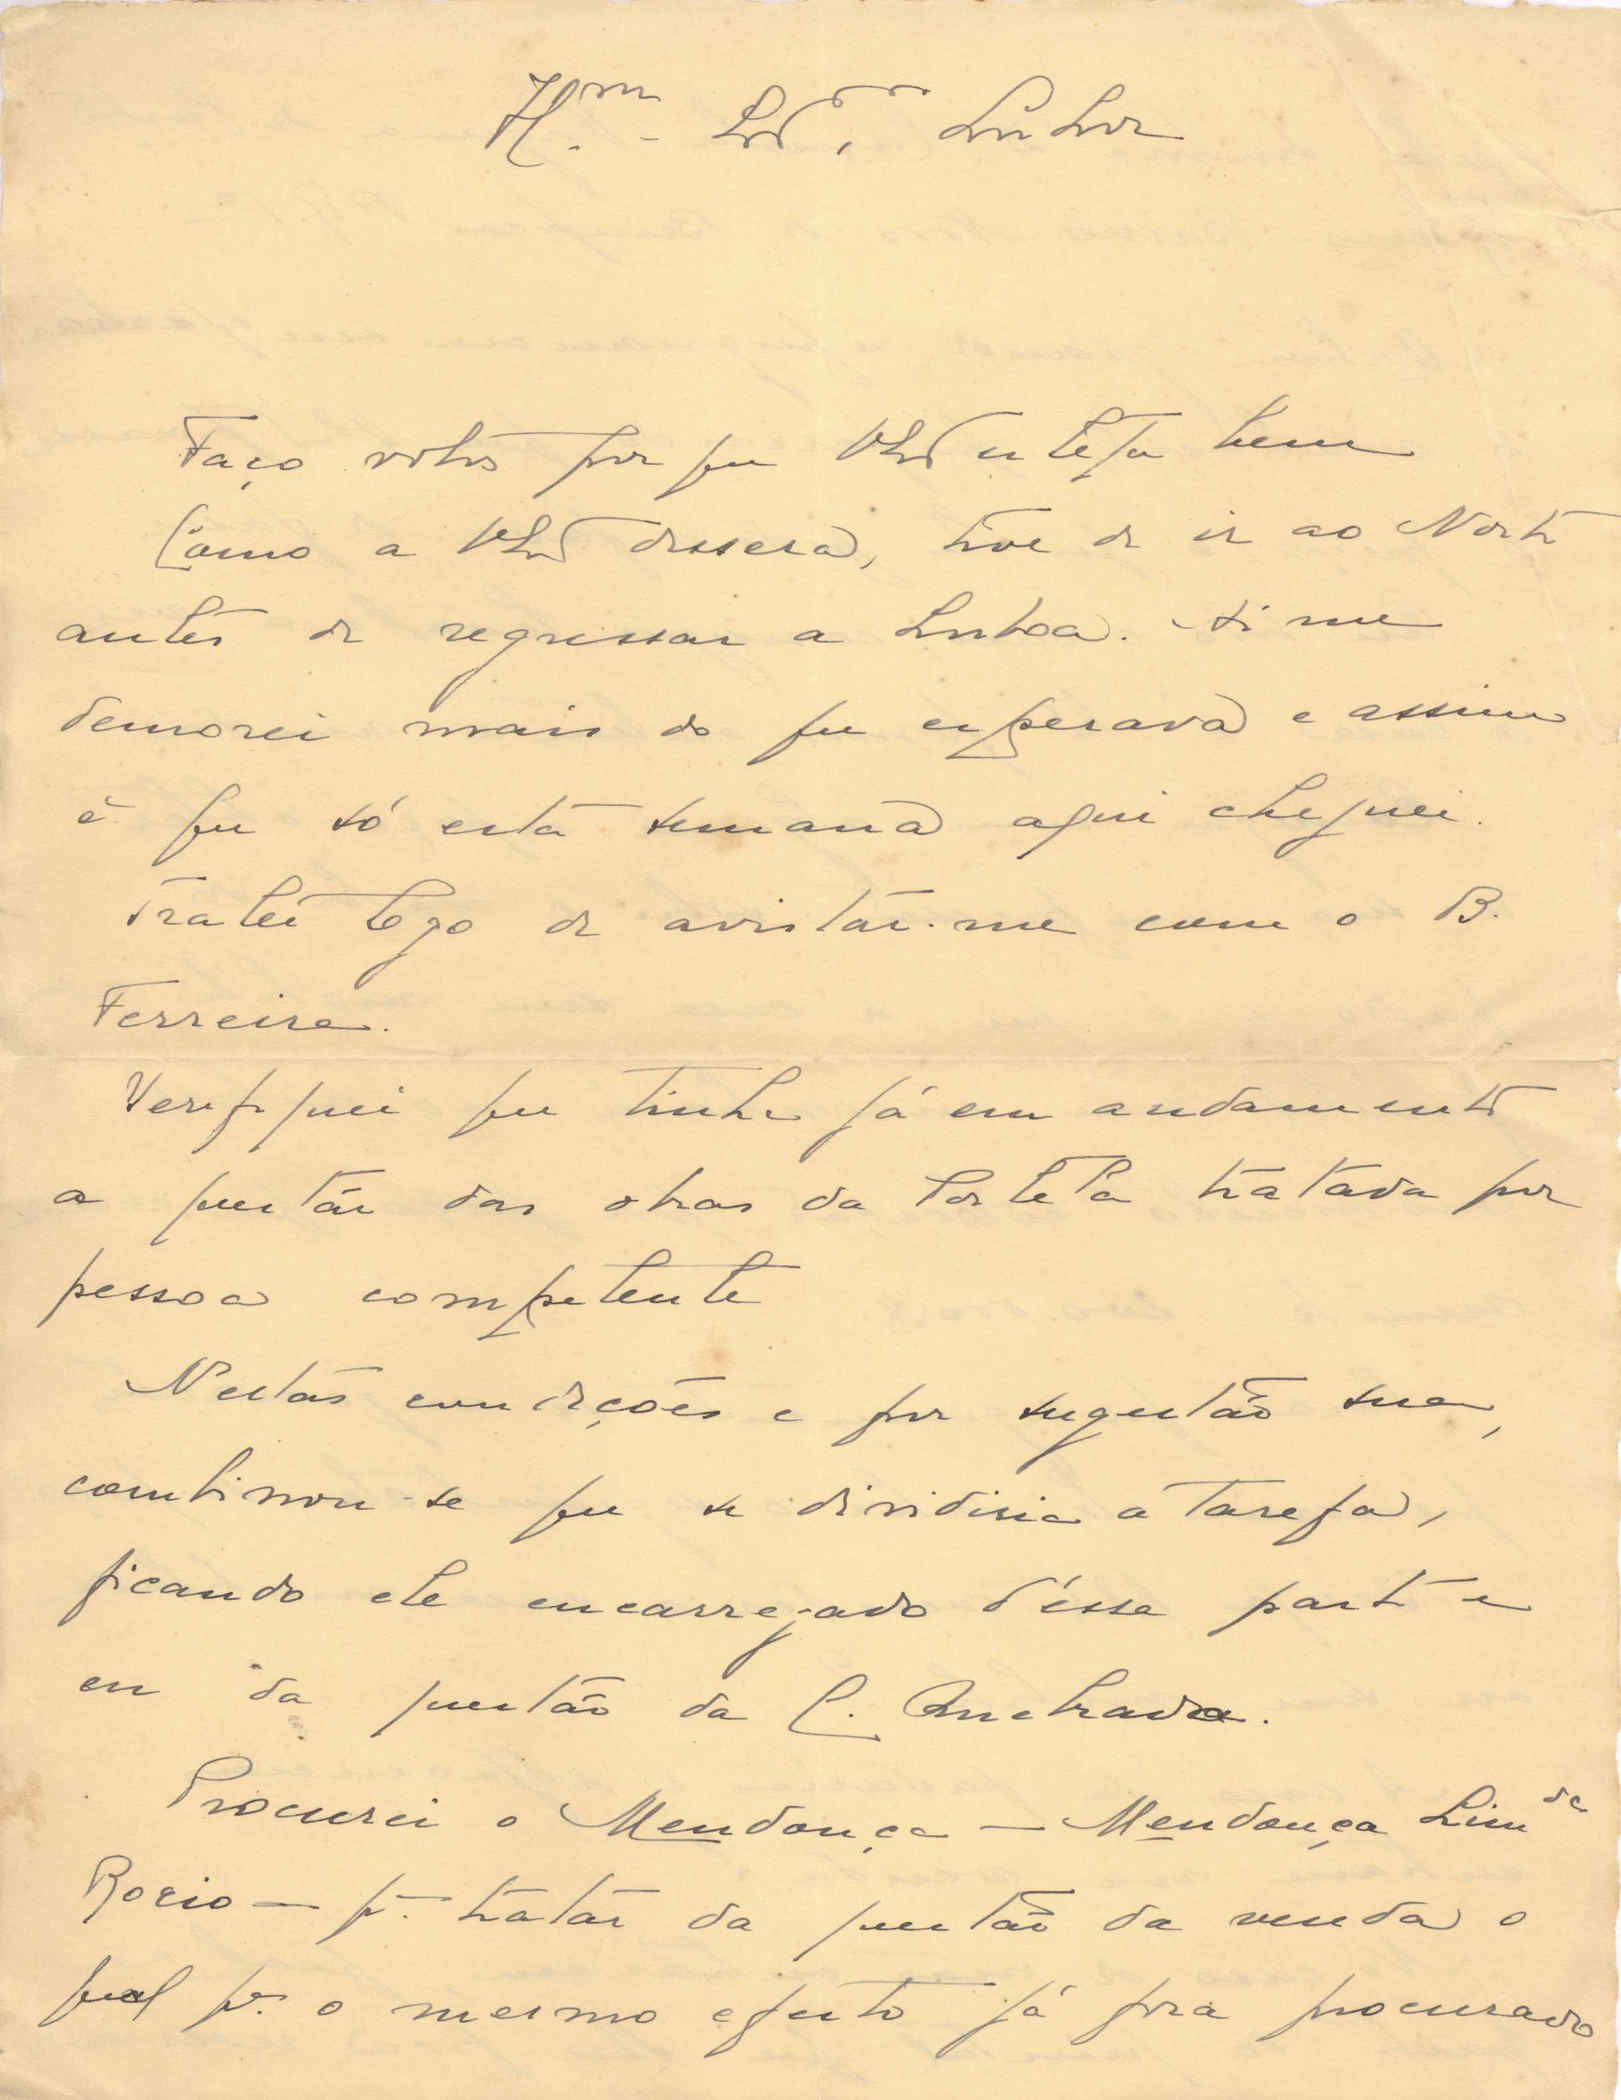 Il.mo Ex.mo Senhor
Faço votos por que V. Ex.ª esteja bem
Como a V. Ex.ª dissera, tive de ir ao Norte
antes de regressar a Lisboa. Ai me
demorei mais do que esperava e assim
é que só esta semana aqui cheguei.
Tratei logo de avistar-me com o B.
Ferreira.
Verifiquei que tinha já em andamento
a questão das obras da Portela tratada por
pessoa competente
Nestas condições e por sugestão sua,
combinou-se que se dividiria a tarefa,
ficando ele encarregado d'essa parte e
eu da questão da C. Andrade.
Procurei o Mendonça — Mendonça Lim.da
Rocio — p.ª tratar da questão da venda o
qual p.ª o mesmo efeito já fora procurado